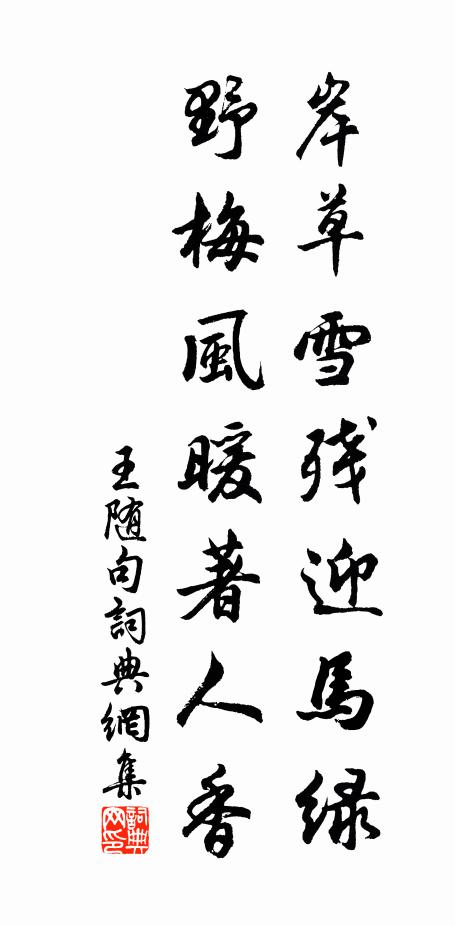 岸草雪残迎馬緑
野梅風暖著人香
王随句詞典網集
詞典网印